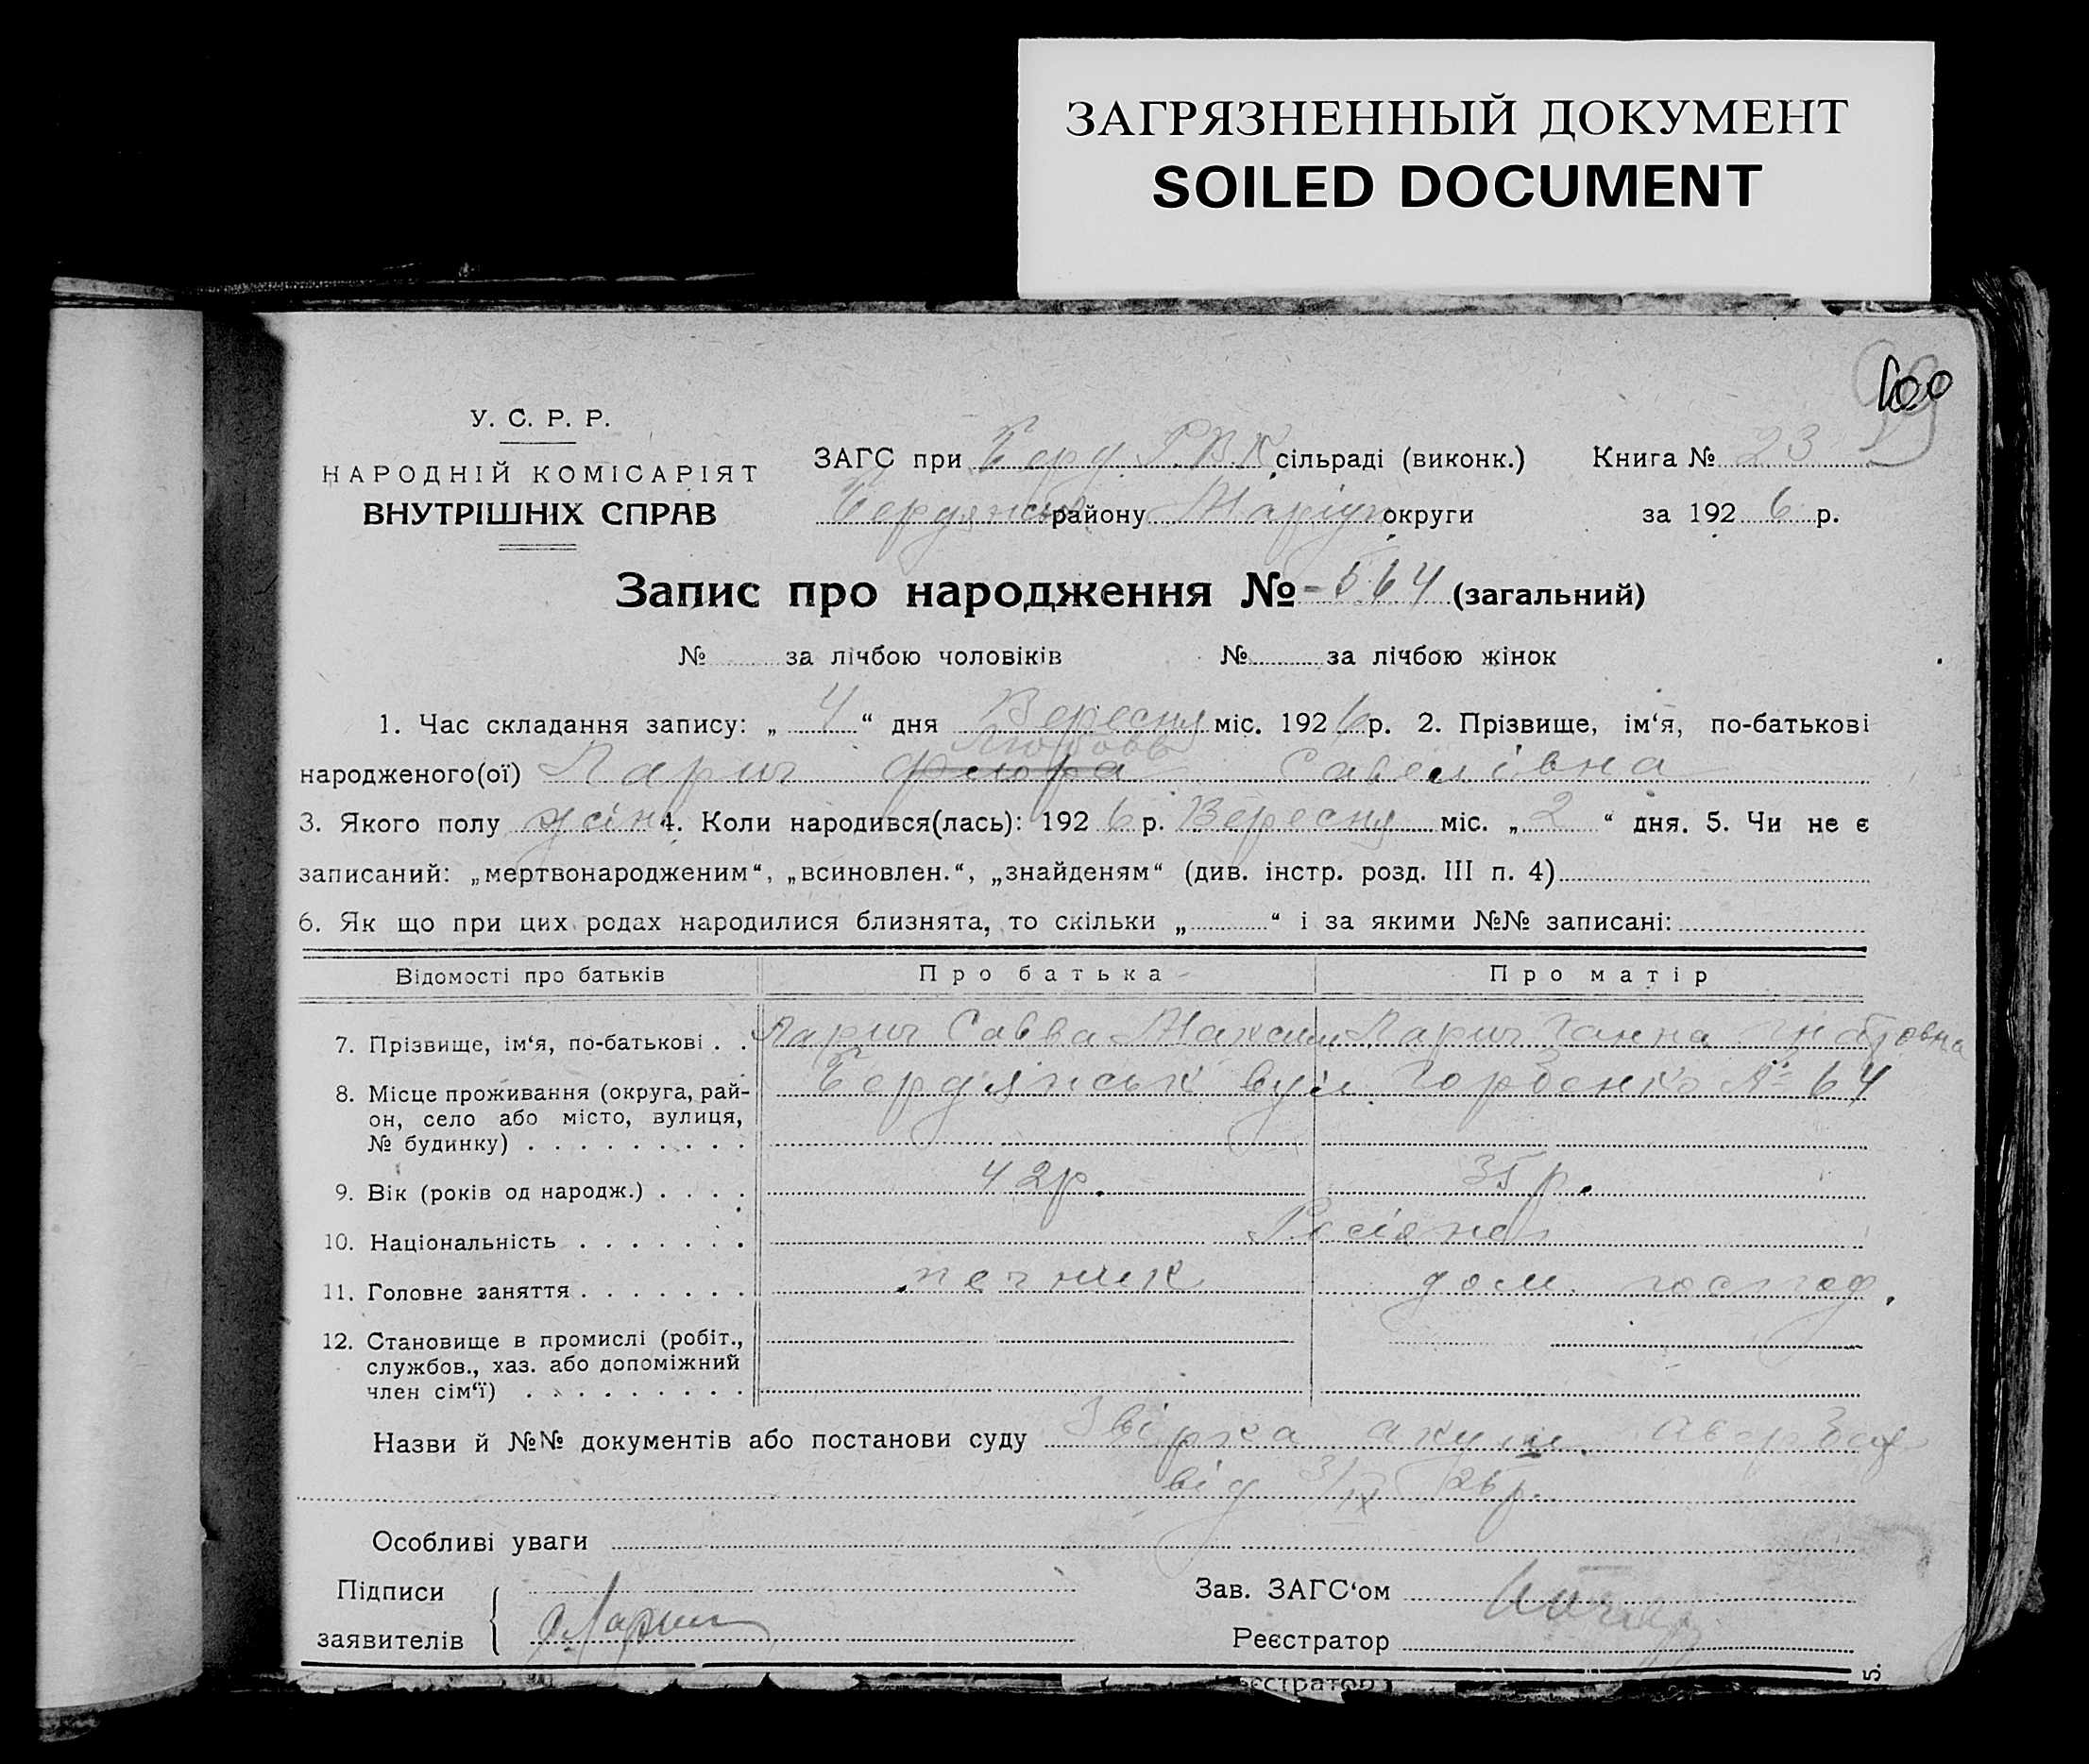 ЗАГРЯЗНЕННЫЙ ДОКУМЕНТ
SOILED DOCUMENT
100
99
У. С. Р. Р.
НАРОДНІЙ КОМІСАРІЯТ
ВНУТРІШНІХ СПРАВ
ЗАГС при Берд. Р.В.К. сільраді (виконк.) Книга № 23
Бердянськ району Маріуп округи за 1926 р.
Запис про народження № 564 (загальний)
№ за лічбою чоловіків № за лічбою жінок
1. Час складання запису: „ 4 “ дня Вересня міс. 1926 р. 2. Прізвище, ім‘я, по-батькові
Любовь
народженого(ої) Ларич Флора Савелівна
3. Якого полу жін 4. Коли народився(лась): 1926 р. Вересня міс. „ 2 “ дня. 5. Чи не є
записаний: „мертвонародженим“, „всиновлен.“, „знайденям“ (див. інстр. розд. III п. 4)
6. Як що при цих родах народилися близнята, то скільки „ “ і за якими №№ записані:
Відомості про батьків Про батька Про матір
7. Прізвище, ім‘я, по-батькові . . Ларич Савва Максим Ларич Ганна
8. Місце проживання (округа, рай- Бердянськ вул. Горбенко № 64
он, село або місто, вулиця,
№ будинку)
9. Вік (років од народж.) . . . . 42р. 35р.
10. Національність . . . . . . . Росіяне
11. Головне заняття . . . . . . . печник дом. господ.
12. Становище в промислі (робіт.,
службов., хаз. або допоміжний
член сім‘ї)
Назви й №№ документів або постанови суду акуш.
від 3/IX 26р.
Особливі уваги
Підписи Зав. ЗАГС‘ом
заявителів Ларич Реєстратор
5.
еєстратор